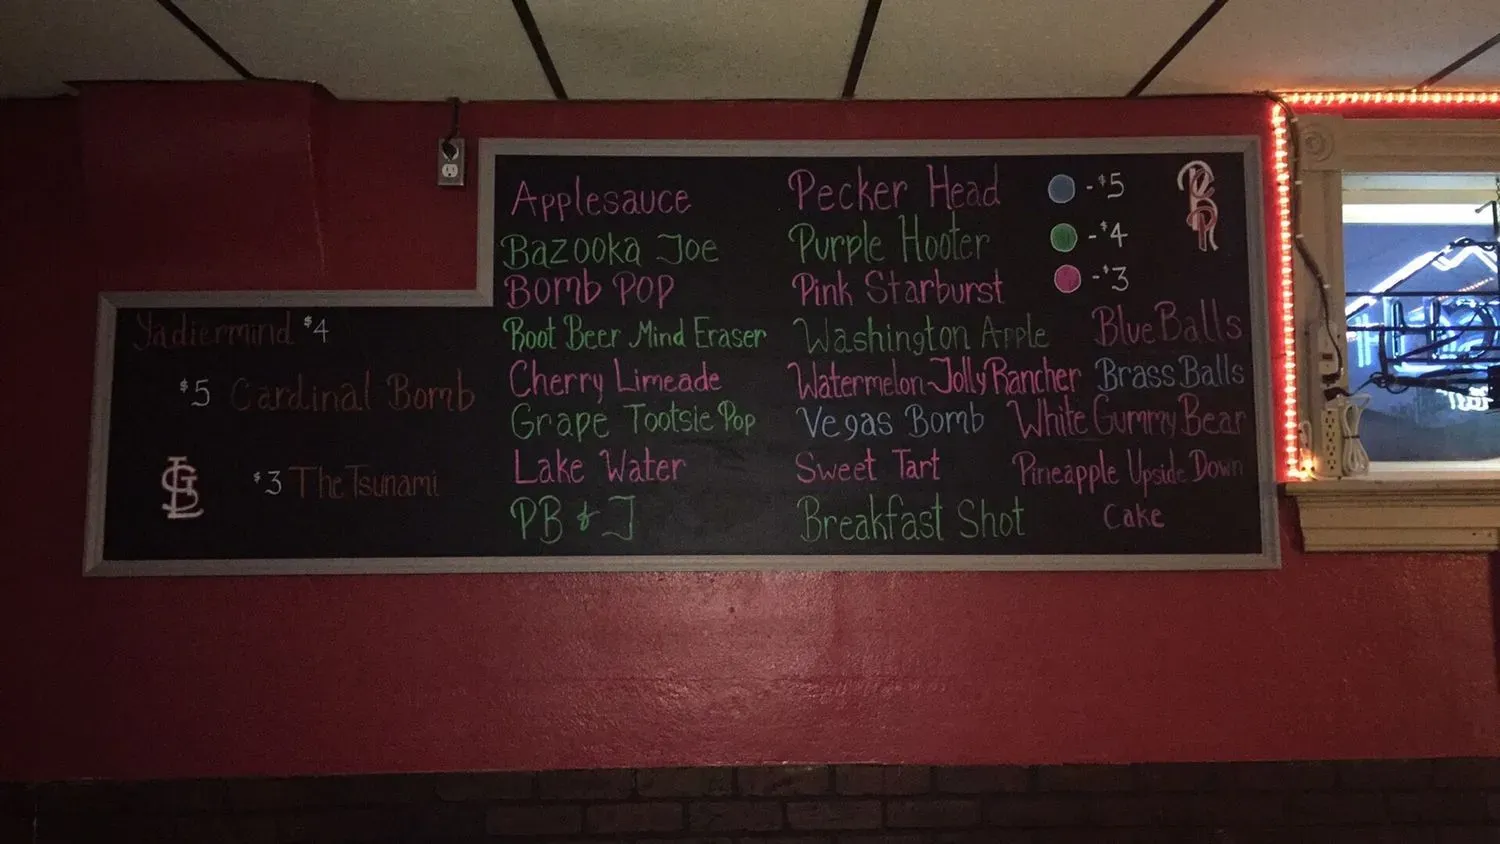 Applesauce
Bazooka Joe
Bomb Pop
Root Beer Mind Eraser
Cherry Limeade
Grape Tootsie Pop
Lake Water
PB & J
Pecker Head
Purple Hooter
Pink Starburst
Washington Apple
Watermelon-Jolly Rancher
Vegas Bomb
Sweet Tart
Breakfast Shot
- $5
- $4
- $3
Blue Balls
Brass Balls
White Gummy Bear
Pineapple Upside Down
Cake
Yadiermind $4
$5 Cardinal Bomb
$3 The Tsunami
STL